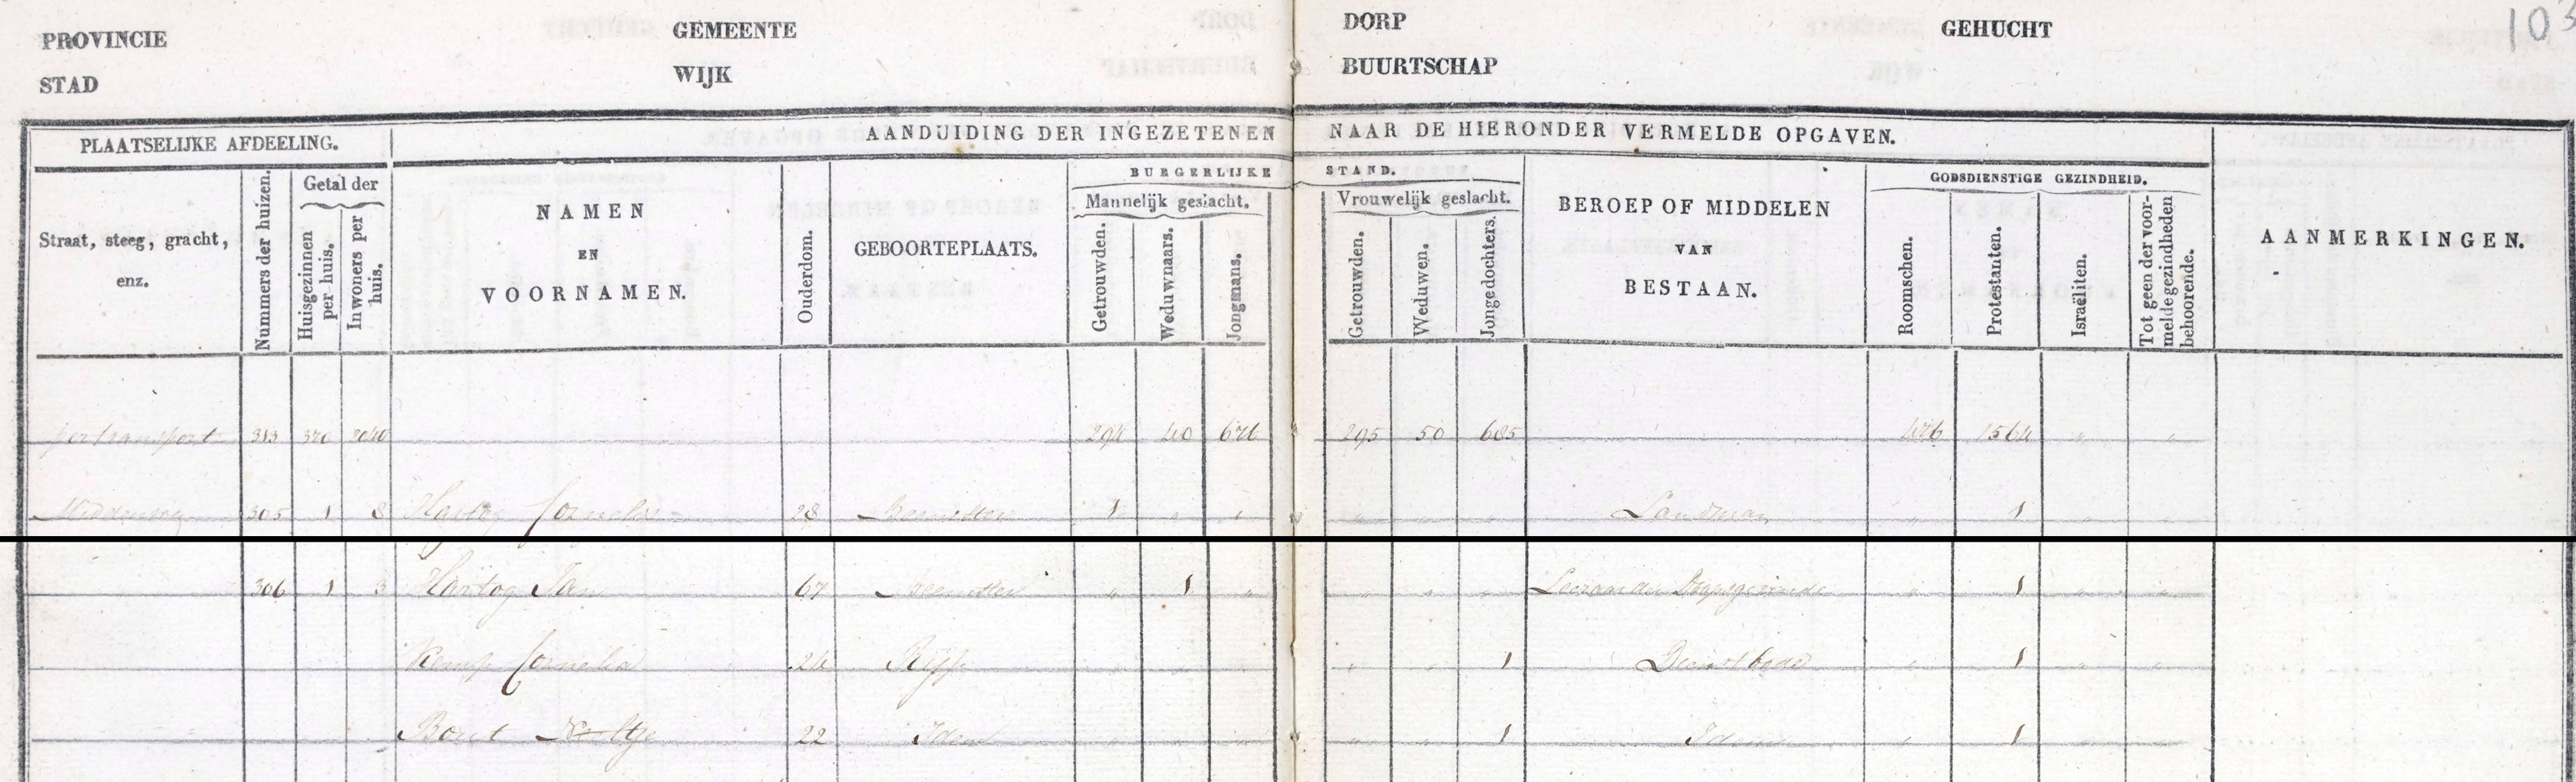 PROVINCIE GEMEENTE DORP GEHUCHT 103
STAD WIJK BUURTSCHAP
PLAATSELIJKE AFDEELING. AANDUIDING DER INGEZETENEN NAAR DE HIERONDER VERMELDE OPGAVEN.
Straat, steeg, gracht, enz.
Nummers der huizen.
Getal der
Huisgezinnen per huis.
Inwoners per huis.
NAMEN
EN
VOORNAMEN.
Ouderdom.
GEBOORTEPLAATS.
BURGERLIJKE STAND.
Mannelijk geslacht.
Getrouwden.
Weduwnaars.
Jongmans.
Vrouwelijk geslacht.
Getrouwden.
Weduwen.
Jongedochters.
BEROEP OF MIDDELEN
VAN
BESTAAN.
GODSDIENSTIGE GEZINDHEID.
Roomschen.
Protestanten.
Israëliten.
Tot geen der voor-
melde gezindheden
behoorende.
AANMERKINGEN.
per transport 313 370 2040 294 40 676 " 295 50 685 476 1564 " "
Middenweg 305 1 8 Hartog Cornelis 28 Beemster 1 " " " " " " Landman " 1 " "
306 1 3 Hartog Jan 67 Beemster " 1 " " " " Leeraar der Doopsgezinde " 1 " "
Kemp Cornelia 24 Rijp " " " " " 1 Dienstbode " 1 " "
Bout 22 Idem " " " " " " 1 Idem " 1 " "